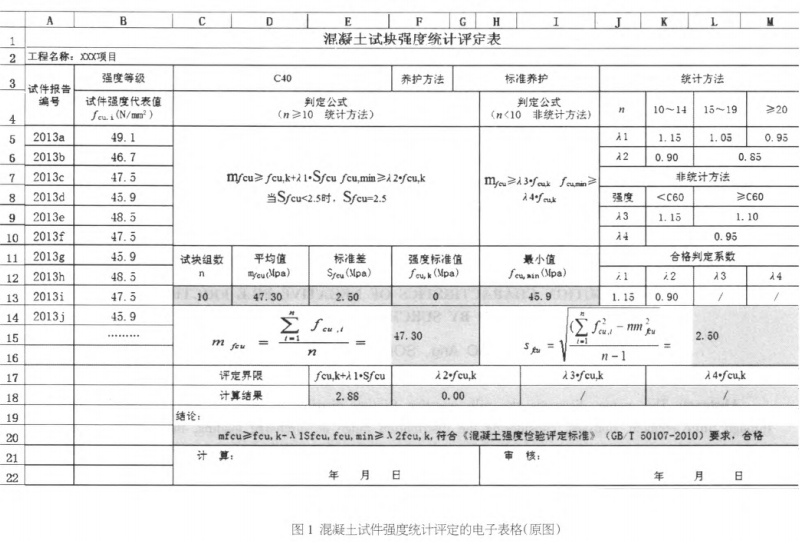 A B C D E F G H I J K L M
1 混凝土试块强度统计评定表
2 工程名称：XXX项目
3 试件报告编号 强度等级 C40 养护方法 标准养护 统计方法
4 试件强度代表值 fcu,i(N/mm²) 判定公式 (n≥10 统计方法) 判定公式 (n<10 非统计方法) n 10～14 15～19 ≥20
5 2013a 49.1 λ1 1.15 1.05 0.95
6 2013b 46.7 λ2 0.90 0.85
7 2013c 47.5 mfcu≥fcu,k+λ1•Sfcu fcu,min≥λ2•fcu,k mfcu≥λ3•fcu,k fcu,min≥ 非统计方法
8 2013d 45.9 当Sfcu<2.5时，Sfcu=2.5 λ4•fcu,k 强度 <C60 ≥C60
9 2013e 48.5 λ3 1.15 1.10
10 2013f 47.5 λ4 0.95
11 2013g 45.9 试块组数 平均值 标准差 强度标准值 最小值 合格判定系数
12 2013h 48.5 n mfcu(Mpa) Sfcu(Mpa) fcu,k(Mpa) fcu,min(Mpa) λ1 λ2 λ3 λ4
13 2013i 47.5 10 47.30 2.50 0 45.9 1.15 0.90 / /
14 2013j 45.9
15 ……… m fcu = ∑ i=1 f cu,i / n = 47.30 S fcu = √((∑ i=1 f²cu,i − nm²fcu) / (n−1)) = 2.50
16
17 评定界限 fcu,k+λ1•Sfcu λ2•fcu,k λ3•fcu,k λ4•fcu,k
18 计算结果 2.88 0.00 / /
19 结论：
20 mfcu≥fcu,k-λ1Sfcu,fcu,min≥λ2fcu,k,符合《混凝土强度检验评定标准》（GB/T 50107-2010）要求，合格
21 计 算： 审 核：
22 年 月 日 年 月 日
图1 混凝土试件强度统计评定的电子表格(原图)